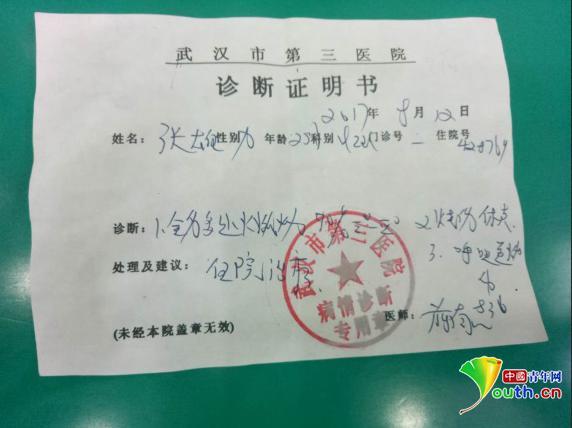 武汉市第三医院
诊断证明书
2017年8月12日
姓名：张 性别 男 年龄 23 科别 门诊号 — 住院号
诊断：1.全身多处火焰烧伤 2.烧伤休克
3.呼吸道烧伤
处理及建议：住院治疗
武汉市第三医院
病情诊断
专用章
医师：
(未经本院盖章无效)
中國青年网
Youth.cn